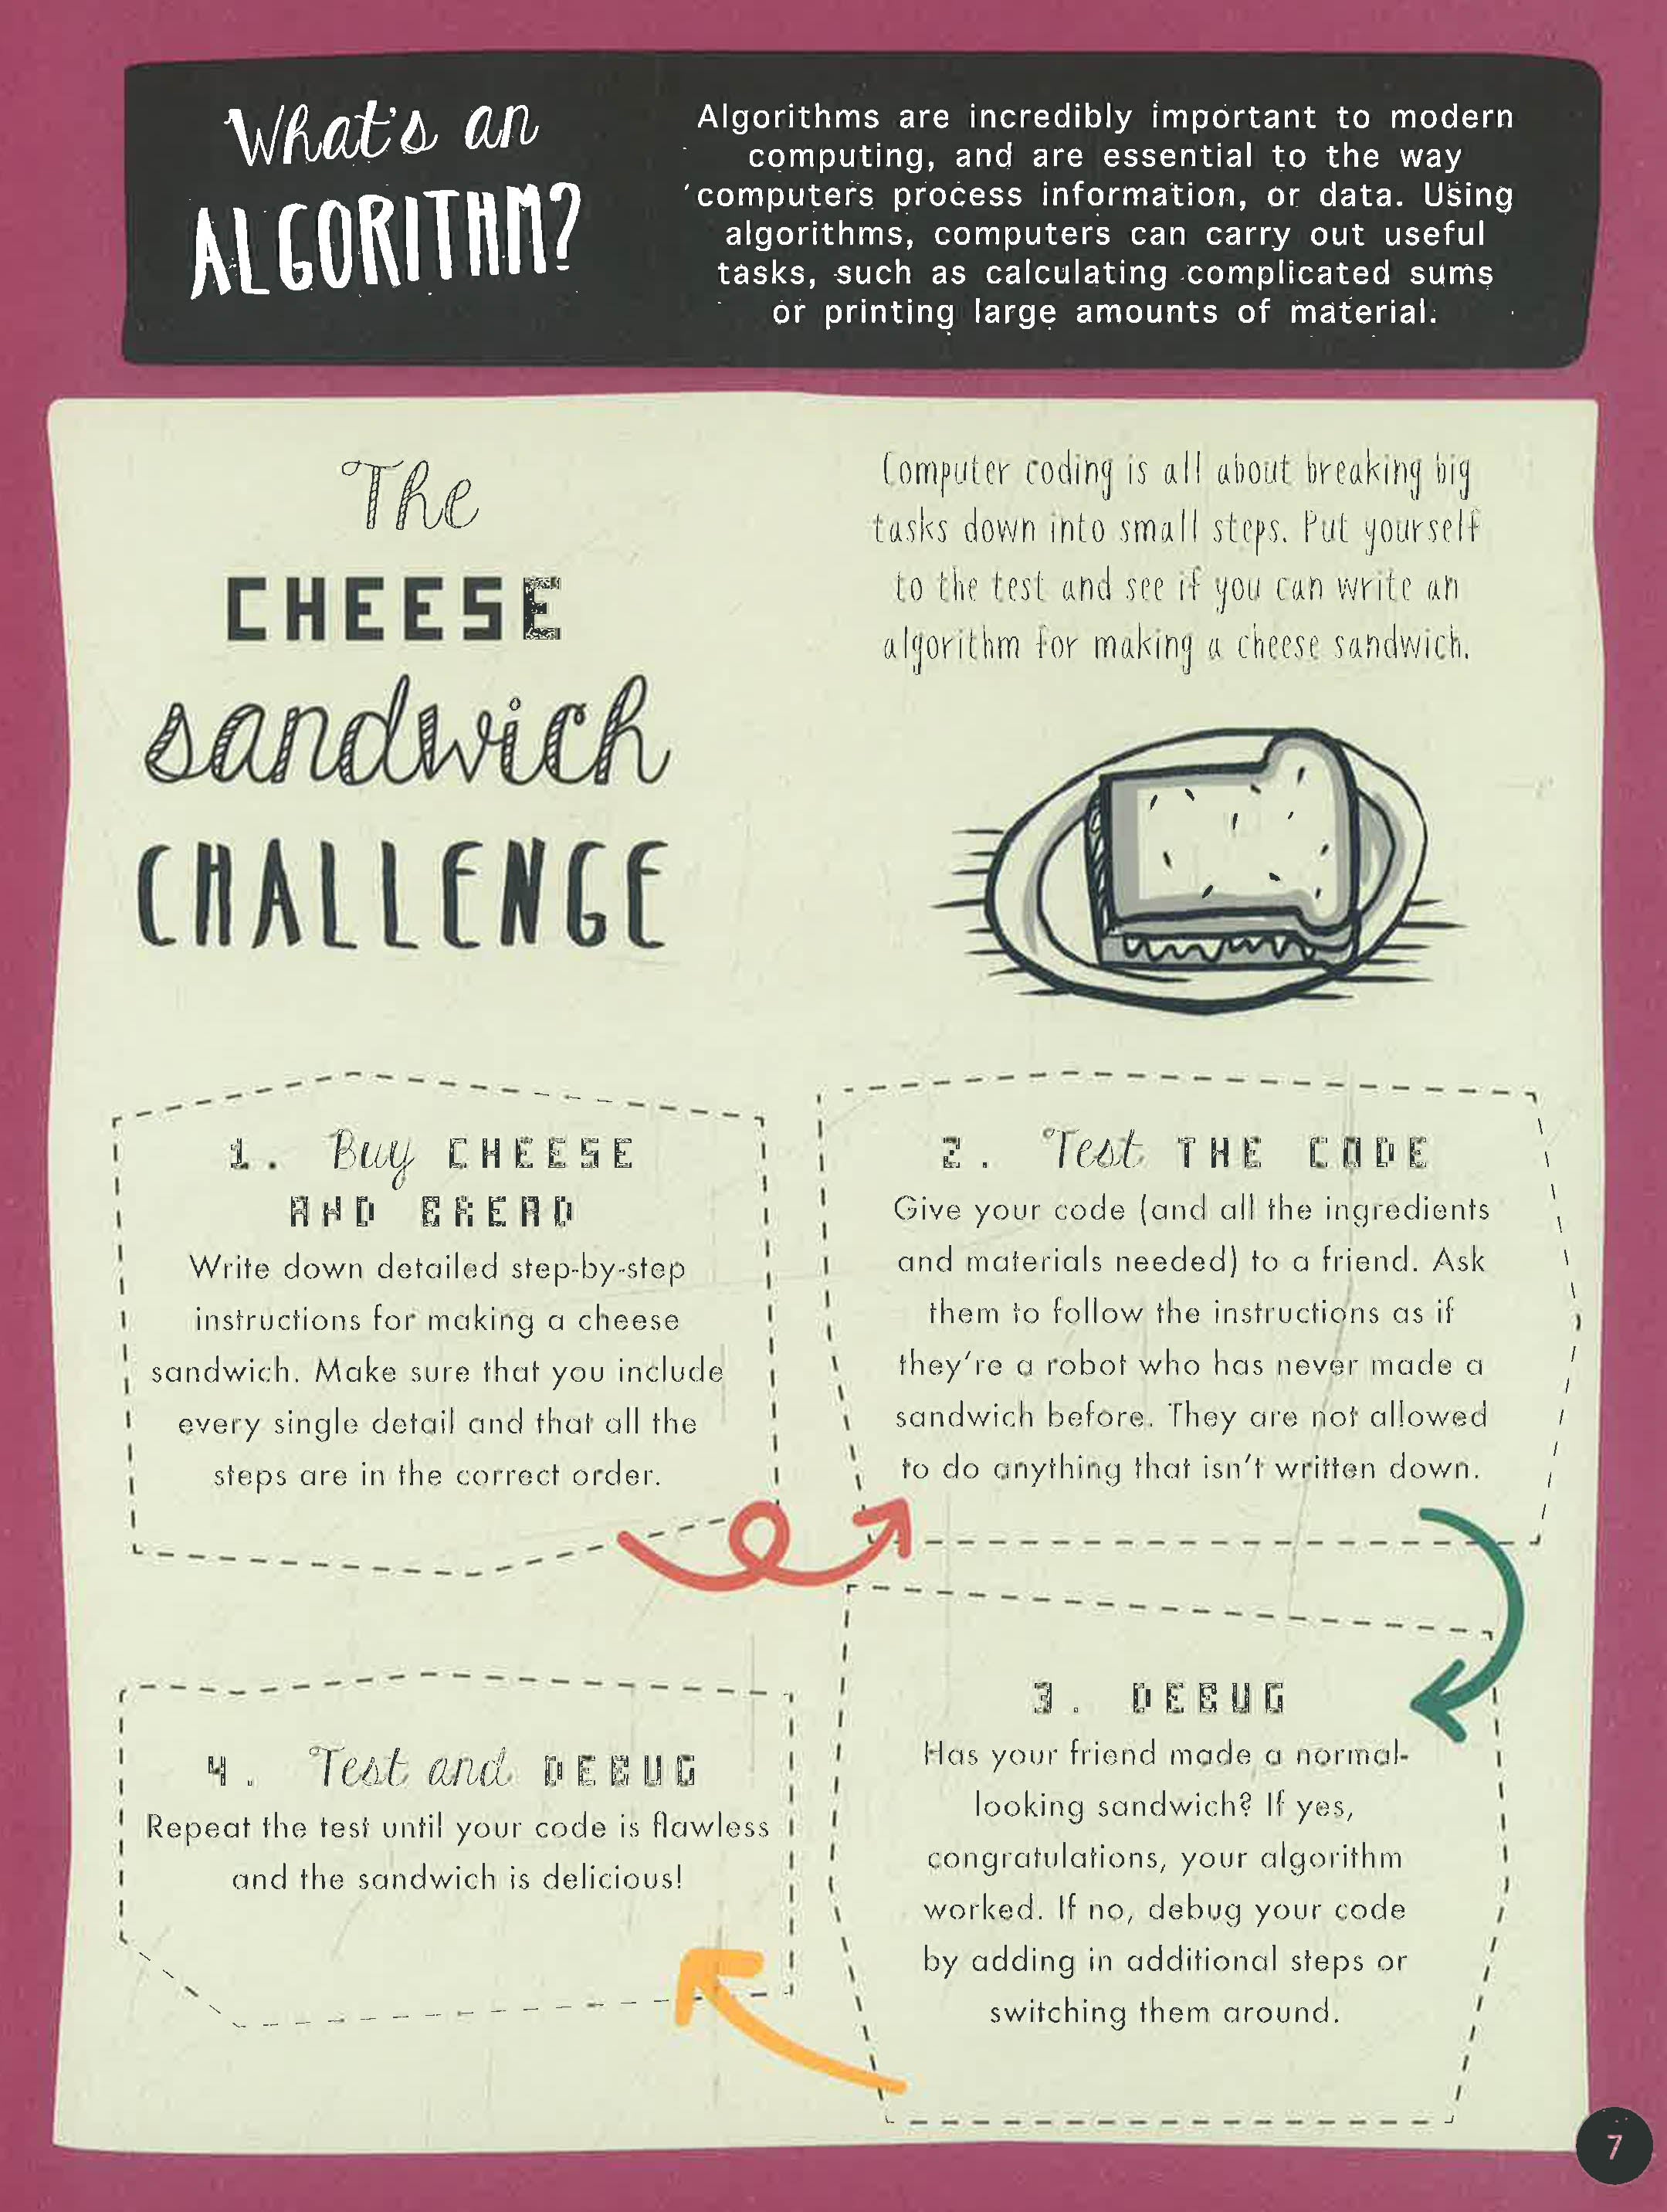 What's an
ALGORITHM?
Algorithms are incredibly important to modern
computing, and are essential to the way
computers process information, or data. Using
algorithms, computers can carry out useful
tasks, such as calculating complicated sums
or printing large amounts of material.
The
CHEESE
sandwich
CHALLENGE
Computer coding is all about breaking big
tasks down into small steps. Put yourself
to the test and see if you can write an
algorithm for making a cheese sandwich.
1. Buy CHEESE
AND BREAD
Write down detailed step-by-step
instructions for making a cheese
sandwich. Make sure that you include
every single detail and that all the
steps are in the correct order.
2. Test THE CODE
Give your code (and all the ingredients
and materials needed) to a friend. Ask
them to follow the instructions as if
they're a robot who has never made a
sandwich before. They are not allowed
to do anything that isn't written down.
3. DEBUG
Has your friend made a normal-
looking sandwich? If yes,
congratulations, your algorithm
worked. If no, debug your code
by adding in additional steps or
switching them around.
4. Test and DEBUG
Repeat the test until your code is flawless
and the sandwich is delicious!
7